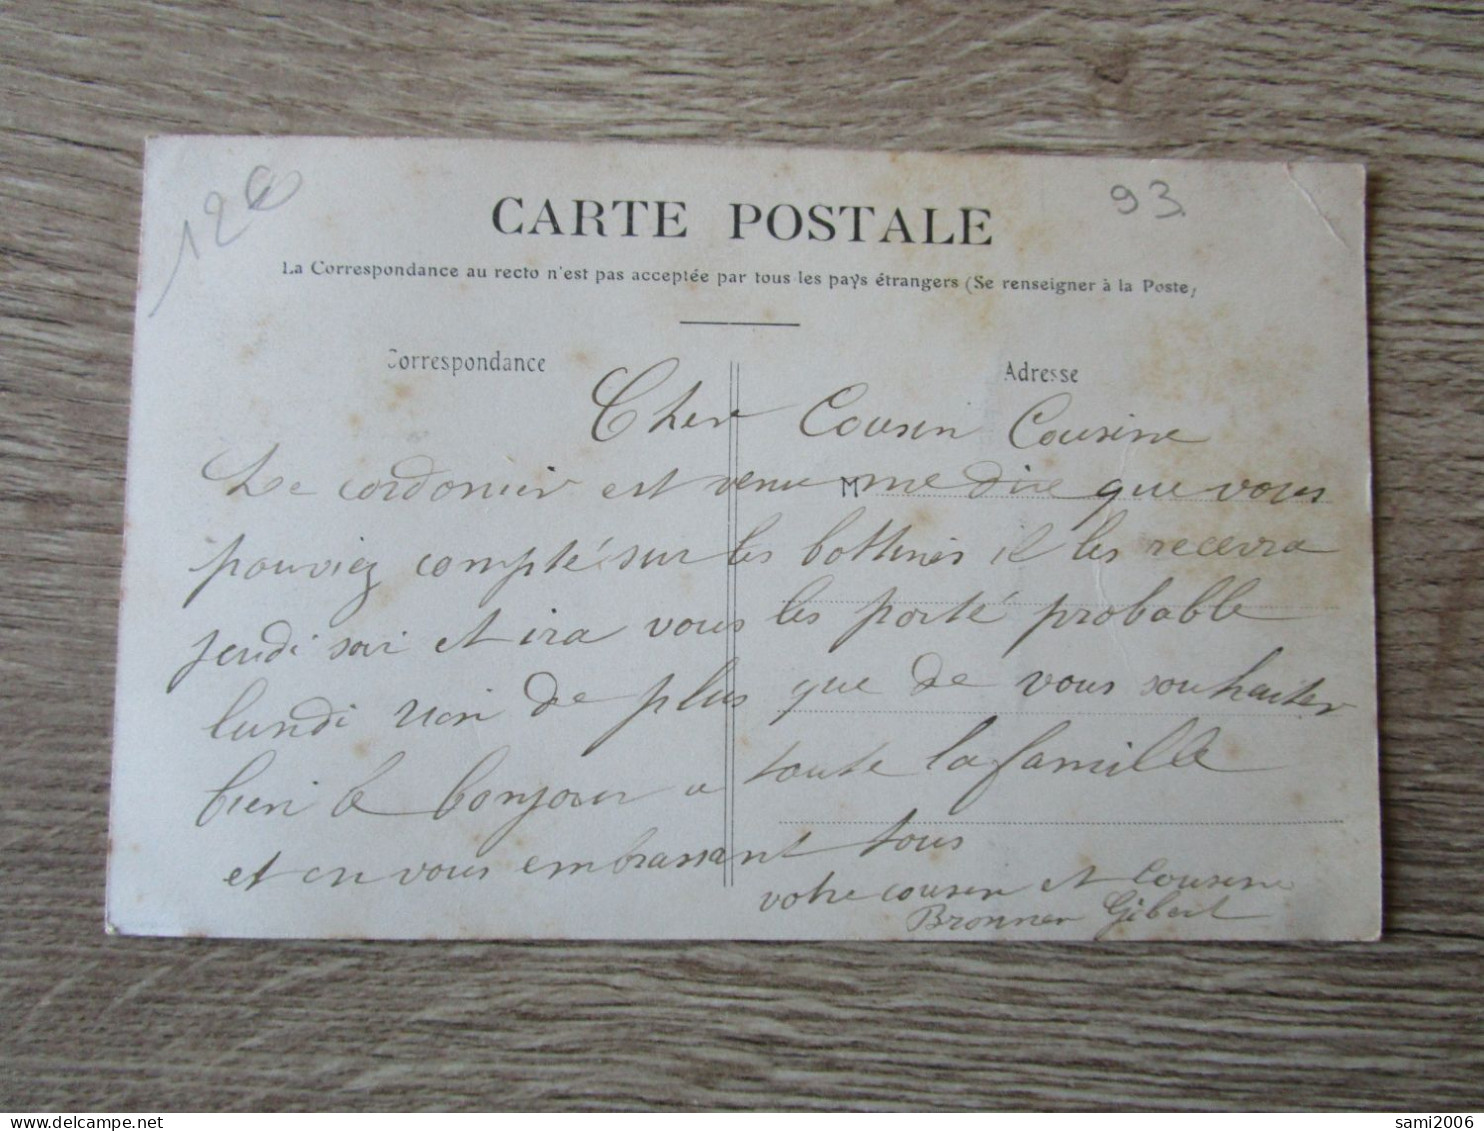 120
93
CARTE POSTALE
La Correspondance au recto n'est pas acceptée par tous les pays étrangers (Se renseigner à la Poste)
Correspondance
Adresse
M
Cher Cousin Cousine
Le cordonier est venu me dire que vous
pouviez compté sur les bottines il les recevra
jeudi soir et ira vous les porté probable
lundi rien de plus que de vous souhaiter
bien le bonjour a toute la famille
et en vous embrassant tous
votre cousin et Cousine
Bronner Gibert
sami2006